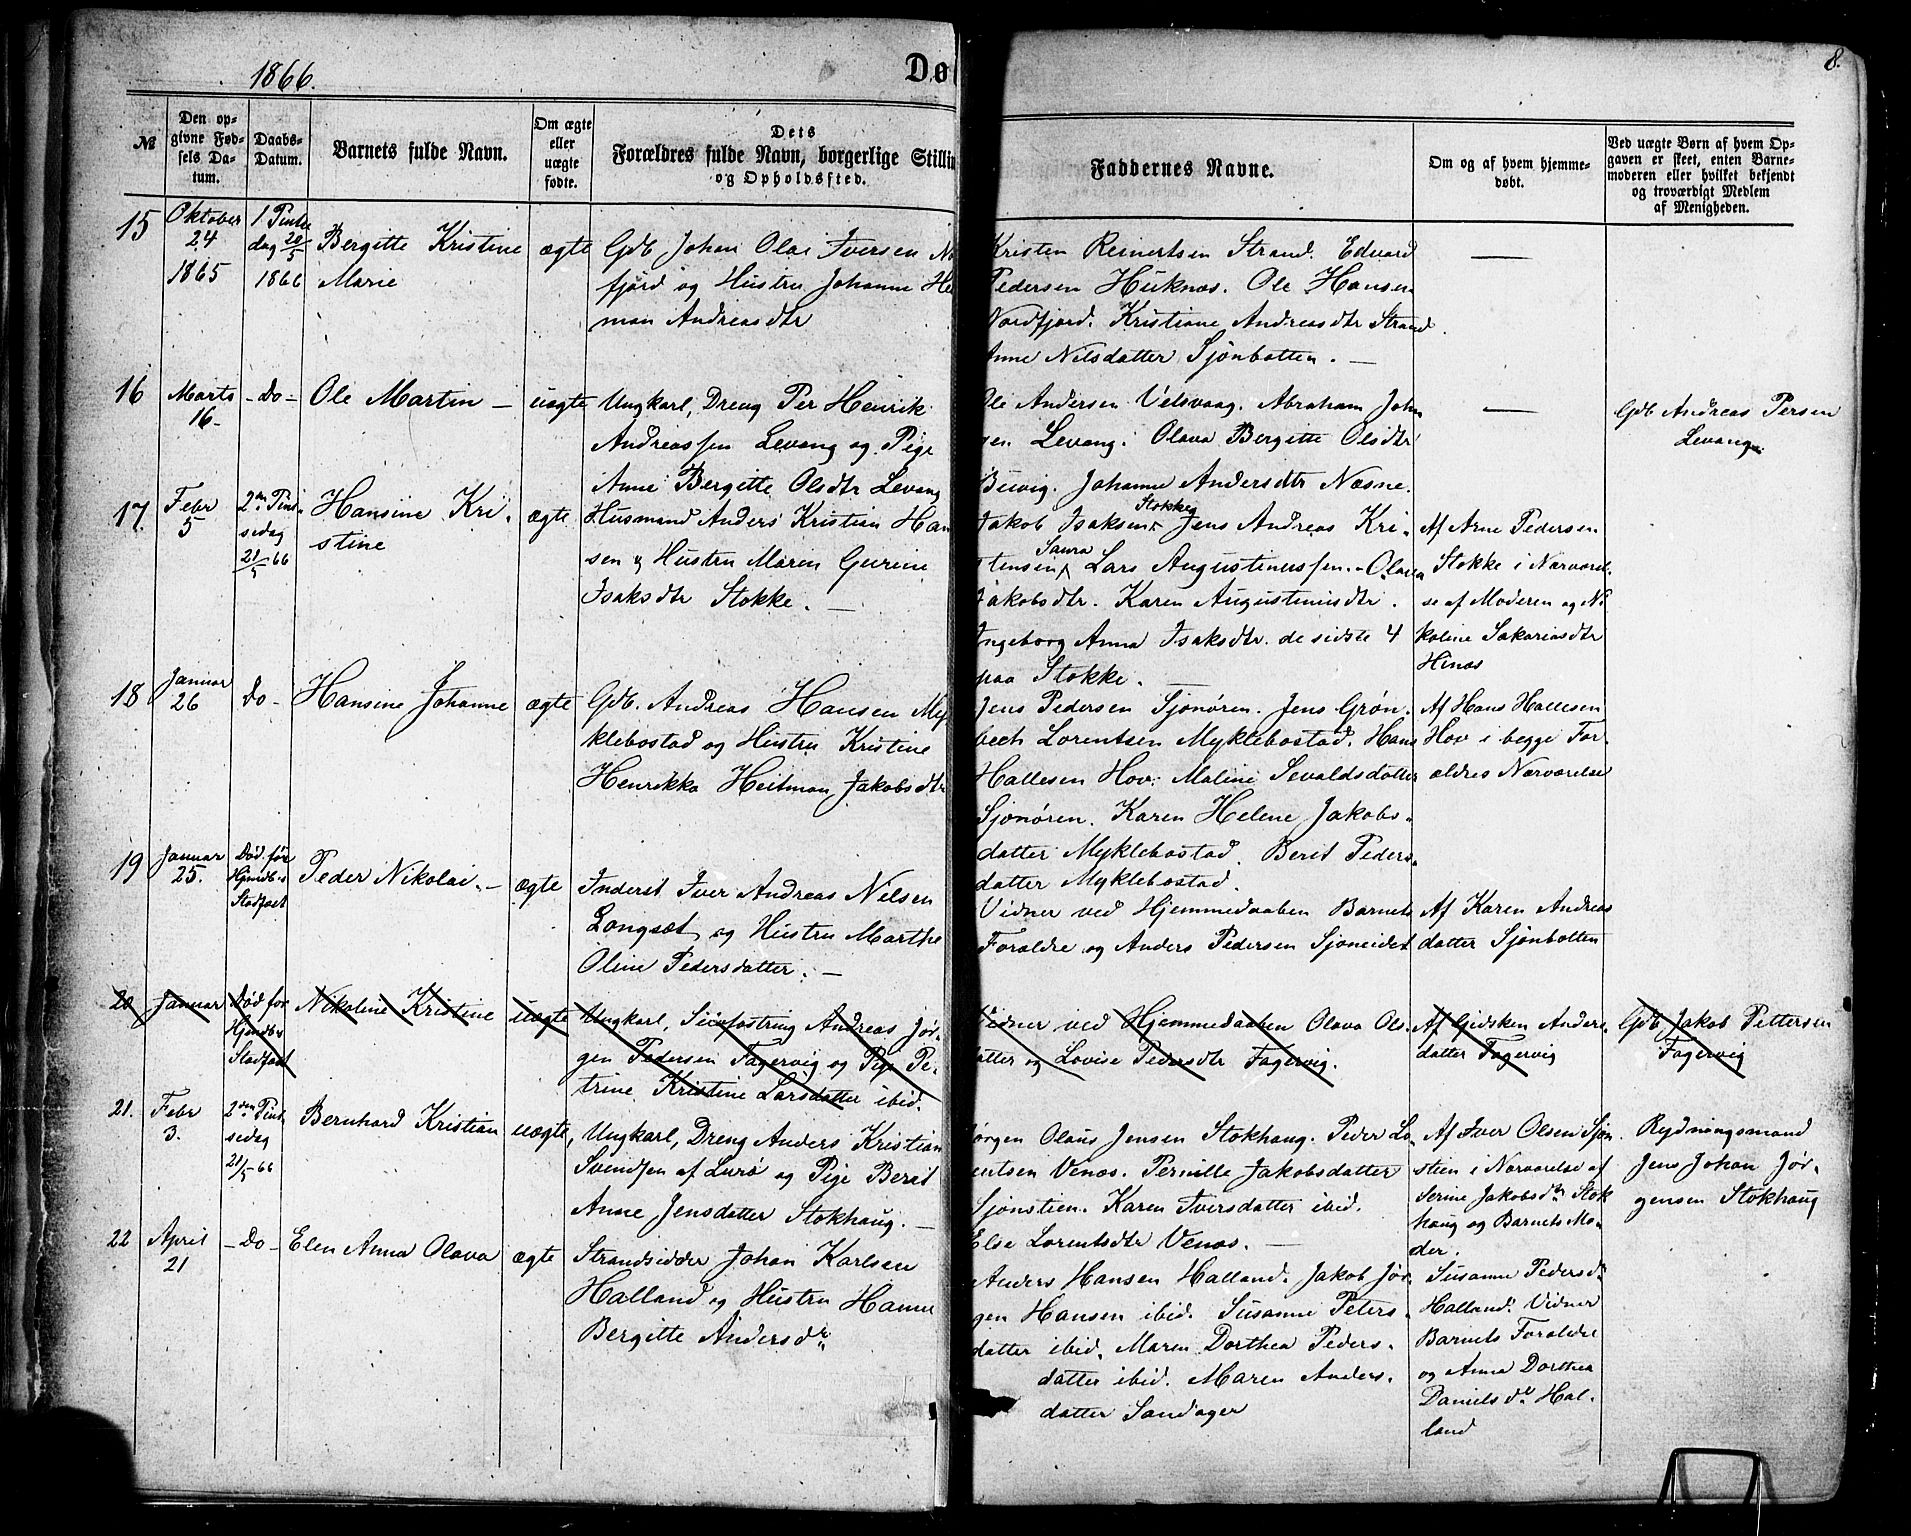 1866.
Dø
8.
№
Den op-
givne Fød-
sels Da-
tum.
Daabs-
Datum.
Barnets fulde Navn.
Om ægte
eller
uægte
fødte.
Dets
Forældres fulde Navn, borgerlige Stillin
og Opholdssted.
Faddernes Navne.
Om og af hvem hjemme-
døbt.
Ved uægte Børn af hvem Op-
gaven er skeet, enten Barne-
moderen eller hvilket bekjendt
og troværdigt Medlem
af Menigheden.
15
Oktober
24
1865
1. Pintse
dag 20/5
1866
Bergitte Kristine
Marie
ægte
Gdb Johan Olai Iversen No
fjord og Hustru Johanne Hei
man Andreasdtr
Kristen Reinertsen Strand. Edvard
Pedersen Huknæs. Ole Hansen
Nordfjord. Kristiane Andreasdtr Strand
Anne Nilsdatter Sjónbotten. —
—
16
Marts
16-
- Do -
Ole Martin —
uægte
Ungkarl, Dreng Per Henrik
Andreassen Levang og Pige
Anne Bergitte Olsdtr Levang
Ole Andersen Velsvaag. Abraham Joh
gen Levang. Olava Bergitte Olsdtr
Buvig. Johanne Andersdtr Næsne.
—
Gdb Andreas Persen
Levang
17.
Febr
5
2den Pint-
sedag
21/5 66
Hansine Kri-
stine
ægte
Husmand Anders Kristian Han
sen og Hustru Maren Gurine
Isaksdtr Stokke. —
Jakob Isaksen Stokke Jens Andreas Kri-
stensen Saura Lars Augustinussen. - Olava
Jakobsdtr. Karen Augustinusdtr.
Ingeborg Anna Isaksdtr. de sidste 4
paa Stokke. —
Af Arne Pedersen
Stokke i Nærværel-
se af Moderen og Ni
koline Sakariasdtr
Hinas
18
Januar
26
Do -
Hansine Johanne
ægte
Gdb. Andreas Hansen My
klebostad og Hustru Kristine
Henrikka Heitman Jakobsdtr
Jens Pedersen Sjonøren. Jens Grøn-
bech Lorentsen Myklebostad. Hans
Hallesen Hov. Maline Sevaldsdatter
Sjonøren. Karen Helene Jakobs-
datter Myklebostad. Berit Peders-
datter Myklebostad.
Af Hans Hallesen
Hov i begge For-
ældres Nærværelse
19
Januar
25.
Død før
Hjmdb's
Stadfæst
Peder Nikolai. —
ægte
Inderst Iver Andreas Nilsen
Langsæt og Hustru Marthe
Oline Pedersdatter. —
Vidner ved Hjemmedaaben Barnets
Forældre og Anders Pedersen Sjoneidet
Af Karen Andreas
datter Sjónbotten
20
Januar
Død før
Hjmdb's
Stadfæst
Nikoline Kristine
uægte
Ungkarl, Andreas Jør-
gen Pedersen Fagervig og Pige Pe-
trine Kristine Larsdatter ibid.
Vidner ved Hjemmedaaben Olava Ols-
datter og Lovise Pedersdtr Fagervig.
Af Gidsken Anders-
datter Fagervig
Gdb Jakob Pettersen
Fagervig
21.
Febr
3.
2den Pint-
sedag
21/5 66
Bernhard Kristian
uægte,
Ungkarl, Dreng Anders Kristian
Svendsen af Lurö og Pige Berit
Anne Jensdatter Stokhaug. —
Jørgen Olaus Jensen Stokhaug. Peder Lo-
rentsen Venæs. Pernille Jakobsdatter
Sjonstien. Karen Iversdatter ibid.
Else Lorentsdtr Venæs. —
Af Iver Olsen Sjon
stien i Nærværelse af
Serine Jakobsdtr Stok
haug og Barnets Mo-
der.
Rydningsmand
Jens Johan Jør-
gensen Stokhaug
22
April
21
- Do -
Elen Anna Olava
ægte
Strandsidder Johan Karlsen
Halland og Hustru Hanne
Bergitte Andersdtr
Anders Hansen Halland. Jakob Jør-
gen Hansen ibid. Susanne Peters-
datter ibid. Maren Dorthea Peders-
datter ibid. Maren Anders-
datter Sandager
Susanne Pedersdr
Halland. Vidner
Barnets Forældre
og Anna Dorthea
Danielsdr Hal-
land